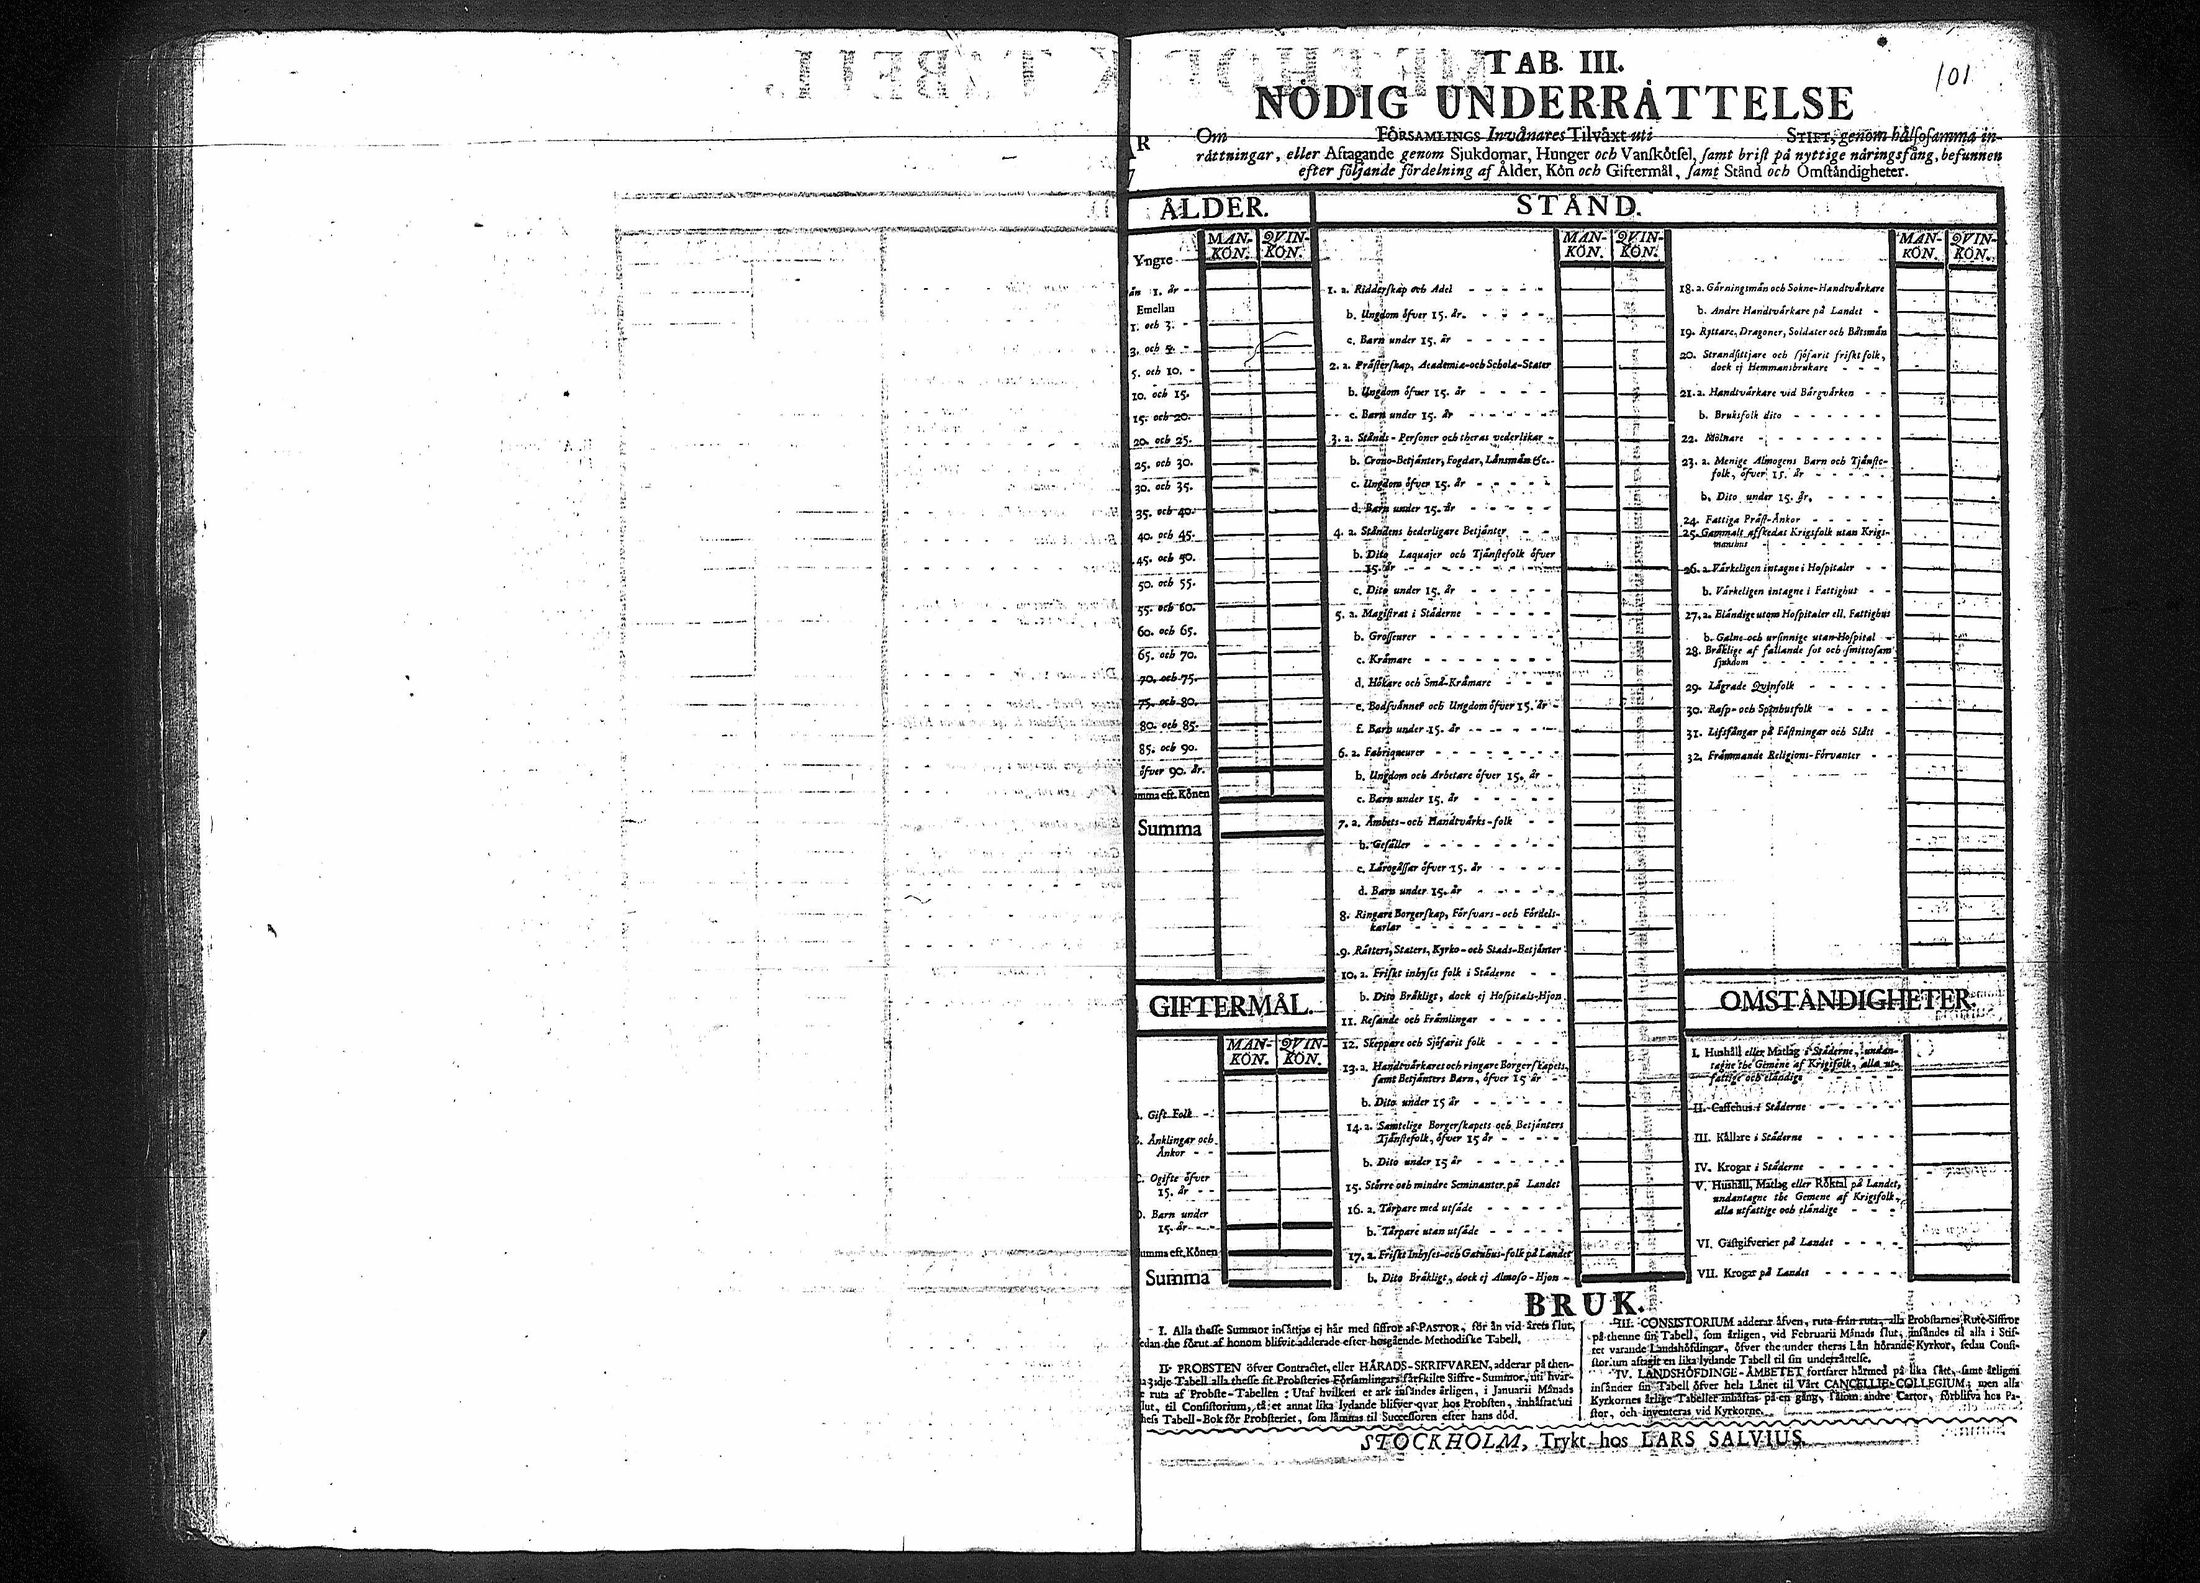 TAB. III.
101
NÖDIG UNDERRÄTTELSE
Om FÖRSAMLINGS Invånares Tilväxt uti STIFT, genom hälsosamma in-
rättningar, eller Aftagande genom Sjukdomar, Hunger och Vanskötsel, samt brist på nyttige näringsfång, befunnen
efter följande fördelning af Ålder, Kön och Giftermål, samt Stånd och Omständigheter.
ÅLDER.
MAN-KÖN. QVIN-KÖN.
Yngre
än 1. år
Emellan
1. och 3.
3. och 5.
5. och 10.
10. och 15.
15. och 20.
20. och 25.
25. och 30.
30. och 35.
35. och 40.
40. och 45.
45. och 50.
50. och 55.
55. och 60.
60. och 65.
65. och 70.
70. och 75.
75. och 80.
80. och 85.
85. och 90.
öfver 90. år.
umma eft. Könen
Summa
GIFTERMÅL.
MAN-KÖN. QVIN-KÖN.
Gift Folk
Änklingar och
Änkor
Ogifte öfver
15. år
Barn under
15. år
umma eft. Könen
Summa
STÅND.
MAN-KÖN. QVIN-KÖN.
1. a. Ridderskap och Adel
b. Ungdom öfver 15. år.
c. Barn under 15. år
2. a. Prästerskap, Academiæ-och Scholæ-Stater
b. Ungdom öfver 15. år
c. Barn under 15. år
3. a. Stånds-Personer och theras vederlikar
b. Crono-Betjänter, Fogdar, Länsmän &c.
c. Ungdom öfver 15. år
d. Barn under 15. år
4. a. Ståndens hederligare Betjänter
b. Dito Laquajer och Tjänstefolk öfver
15. år
c. Dito under 15. år
5. a. Magistrat i Städerne
b. Grosseurer
c. Krämare
d. Hökare och Små-Krämare
e. Bodsvänner och Ungdom öfver 15. år
f. Barn under 15. år
6. a. Fabriqueurer
b. Ungdom och Arbetare öfver 15. år
c. Barn under 15. år
7. a. Ämbets-och Handtvärks-folk
b. Gesäller
c. Lärogåssar öfver 15. år
d. Barn under 15. år
8. Ringare Borgerskap, Försvars-och Fördels-
karlar
9. Rätters, Staters, Kyrko-och Stads-Betjänter
10. a. Friskt inhyses folk i Städerne
b. Dito Bräkligt, dock ej Hospitals-Hjon
11. Resande och Främlingar
12. Skeppare och Sjöfarit folk
13. a. Handtvärkares och ringare Borgerskapets,
samt Betjänters Barn, öfver 15 år
b. Dito under 15 år
14. a. Samtelige Borgerskapets och Betjänters
Tjänstefolk, öfver 15 år
b. Dito under 15 år
15. Större och mindre Seminanter på Landet
16. a. Torpare med utsäde
b. Torpare utan utsäde
17. a. Friskt Inhyses-och Gatuhus-folk på Landet
b. Dito Bräkligt, dock ej Almoso-Hjon
MAN-KÖN. QVIN-KÖN.
18. a. Gärningsmän och Sokne-Handtvärkare
b. Andre Handtvärkare på Landet
19. Ryttare, Dragoner, Soldater och Båtsmän
20. Strandsittjare och sjöfarit friskt folk,
dock ej Hemmansbrukare
21. a. Handtvärkare vid Bärgvärken
b. Bruksfolk dito
22. Mölnare
23. a. Menige Almogens Barn och Tjänste-
folk, öfver 15. år
b. Dito under 15. år,
24. Fattiga Präst-Änkor
25. Gammalt afskedat Krigsfolk utan Krigs-
manshus
26. a. Värkeligen intagne i Hospitaler
b. Värkeligen intagne i Fattighus
27. a. Eländige utom Hospitaler ell. Fattighus
b. Galne och ursinnige utan Hospital
28. Bräklige af fallande sot och smittosam
sjukdom
29. Lägrade Qvinfolk
30. Rasp-och Spinhusfolk
31. Lifsfångar på Fästningar och Slått
32. Främmande Religions-Förvanter
OMSTÄNDIGHETER.
I. Hushåll eller Matlag i Städerne, undan-
tagne the Gemene af Krigsfolk, alla ut-
fattige och eländige
II. Caffehus i Städerne
III. Källare i Städerne
IV. Krogar i Städerne
V. Hushåll, Matlag eller Röktal på Landet,
undantagne the Gemene af Krigsfolk,
alla utfattige och eländige
VI. Gästgifverier på Landet
VII. Krogar på Landet
BRUK.
I. Alla thesse Summor insättjas ej här med siffror af PASTOR, för än vid årets slut,
edan the förut af honom blifvit adderade efter hosgående Methodiske Tabell.
II. PROBSTEN öfver Contractet, eller HÄRADS-SKRIFVAREN, adderar på then-
a 3:dje Tabell alla thesse sit Probsteries Församlingars särskilte Siffre-Summor, uti hvar-
e ruta af Probste-Tabellen: Utaf hvilken et ark insändes årligen, i Januarii Månads
lut, til Consistorium, tå et annat lika lydande blifver qvar hos Probsten, inhäftat uti
hess Tabell-Bok för Probsteriet, som lämnas til Successoren efter hans död.
III. CONSISTORIUM adderar äfven, ruta från ruta, alla Probstarnes Rute-Siffror
på thenne sin Tabell, som årligen, vid Februarii Månads slut, insändes til alla i Stif-
tet varande Landshöfdingar, öfver the under theras Län hörande Kyrkor, sedan Consi-
storium aftagit en lika lydande Tabell til sin underrättelse.
IV. LANDSHÖFDINGE-ÄMBETET fortfarer härmed på lika sätt, samt årligen
insänder sin Tabell öfver hela Länet til Vårt CANCELLIE-COLLEGIUM; men alla
Kyrkornes årlige Tabeller inhäftas på en gång, såsom andre Cartor, förblifva hos Pa-
stor, och inventeras vid Kyrkorne.
STOCKHOLM, Trykt hos LARS SALVIUS.